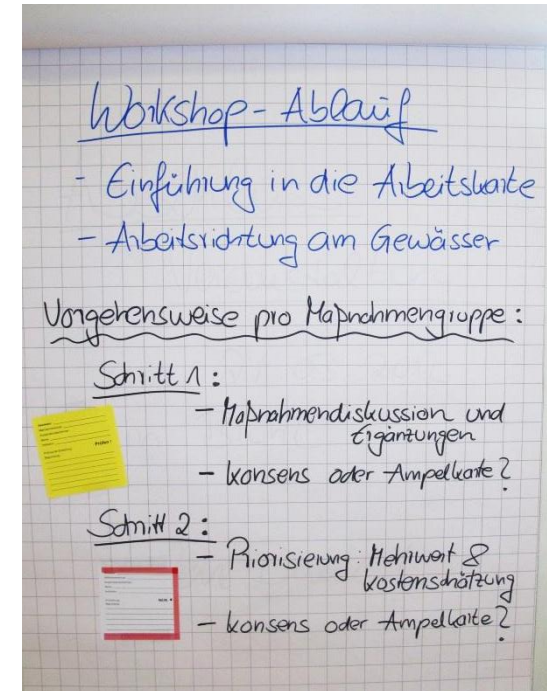 Workshop-Ablauf
- Einführung in die Arbeitskarte
- Arbeitsrichtung am Gewässer
Vorgehensweise pro Maßnahmengruppe:
Schritt 1:
- Maßnahmendiskussion und
Ergänzungen
- Konsens oder Ampelkarte?
Schritt 2:
- Priorisierung: Mehrwert &
Kostenschätzung
- Konsens oder Ampelkarte?